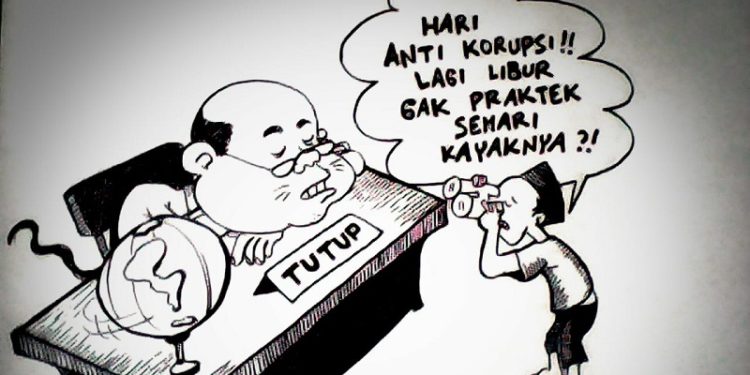 HARI
ANTI KORUPSI!!
LAGI LIBUR
GAK PRAKTEK
SEHARI
KAYAKNYA?!
TUTUP